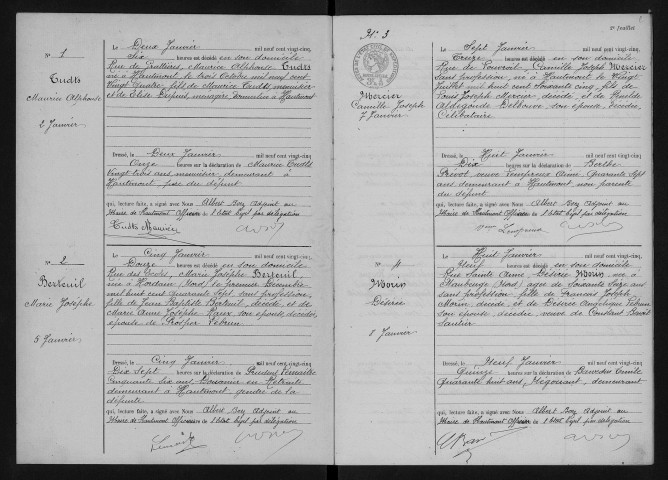 N° 1
Cudts
Maurice Alphonse
2 Janvier
Le Deux Janvier mil neuf cent vingt-cinq,
Six heures est décédé en son domicile
Rue de Maurice Alphonse Cudts
né à Hautmont le trois Octobre mil neuf cent
Vingt Quatre, fils de Maurice Cudts, menuisier
et de Elise Dupuis, ménagère domiciliés à Hautmont
Dressé, le Deux Janvier mil neuf cent vingt-cinq
Onze heures sur la déclaration de Maurice Cudts
Vingt trois ans menuisier, demeurant à
Hautmont père du défunt
qui, lecture faite, a signé avec Nous Albert Adjoint au
Maire de Hautmont Officier de l'Etat Civil par délégation
Cudts Maurice
N° 2
Berteuil
Marie Josèphe
5 Janvier
Le Cinq Janvier mil neuf cent vingt-cinq,
Douze heures est décédée en son domicile
Rue des Marie Josèphe Berteuil
née à Hordain (Nord) le premier Décembre
mil huit cent quarante Sept, sans profession,
fille de Jean Baptiste Berteuil, décédé, et de
Marie Anne Josèphe son épouse, décédée
épouse de Prosper Lebrun
Dressé, le Cinq Janvier mil neuf cent vingt-cinq
Dix Sept heures sur la déclaration de Lemaitre
Cinquante six ans, Douanier en Retraite
demeurant à Hautmont, gendre de la
défunte
qui, lecture faite, a signé avec Nous Albert Adjoint au
Maire de Hautmont Officier de l'Etat Civil par délégation
2e feuillet
N° 3
Mercier
Camille Joseph
7 Janvier
Le Sept Janvier mil neuf cent vingt-cinq,
Treize heures est décédé en son domicile
Rue de Camille Joseph Mercier
Sans profession, né à Hautmont le Vingt
Juillet mil huit cent Soixante cinq, fils de
Louis Joseph Mercier, décédé, et de
Aldegonde son épouse, décédée,
Célibataire
Dressé, le Huit Janvier mil neuf cent vingt-cinq
Dix heures sur la déclaration de Berthe
Prévot veuve Lempereur Aimé, Quarante Sept
ans demeurant à Hautmont non parente
du défunt
qui, lecture faite, a signé avec Nous Albert Adjoint au
Maire de Hautmont Officier de l'Etat Civil par délégation
N° 4
Morin
Désirée
8 Janvier
Le Huit Janvier mil neuf cent vingt-cinq,
Neuf heures est décédée en son domicile
Rue Sainte Anne Désirée Morin, née à
Maubeuge (Nord) âgée de Soixante Seize ans
sans profession fille de François Joseph
Morin, décédé, et de Désirée Angélique Lebrun
son épouse décédée veuve de Constant Benoit
Dressé, le Neuf Janvier mil neuf cent vingt-cinq
Quinze heures sur la déclaration de Emile
Quarante huit ans, Négociant, demeurant
qui, lecture faite, a signé avec Nous Albert Adjoint au
Maire de Hautmont Officier de l'Etat Civil par délégation